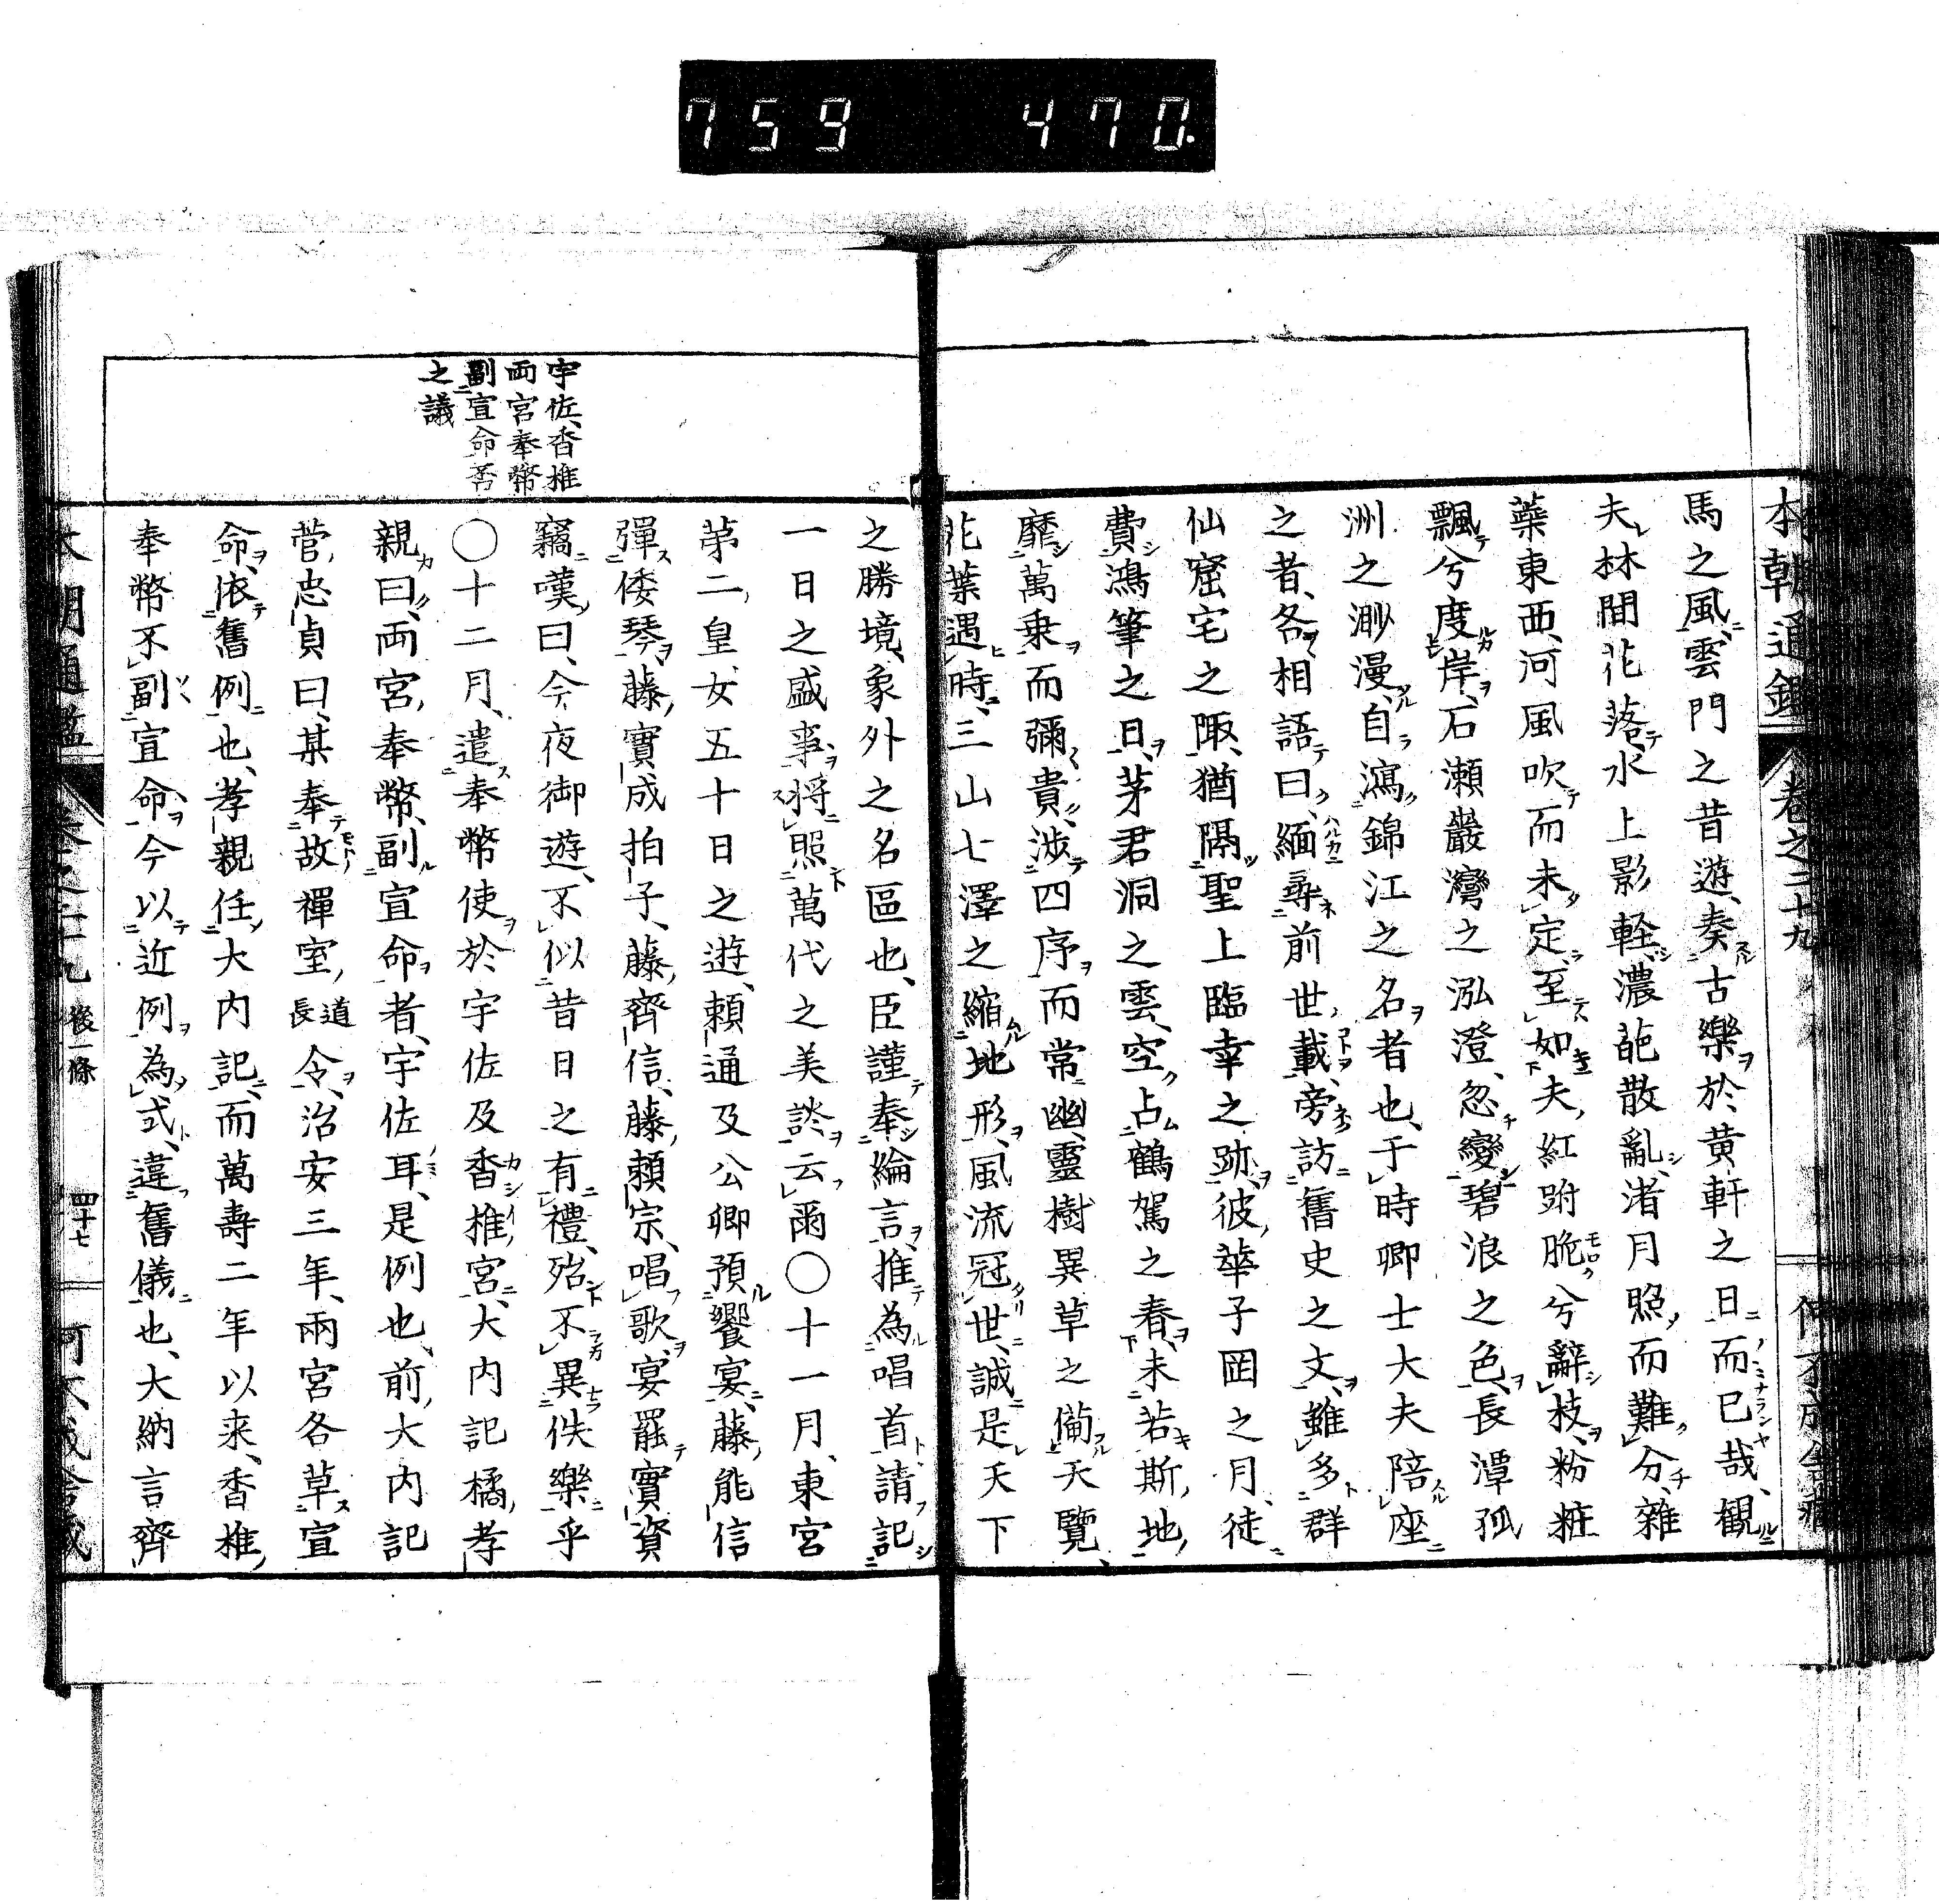 759 470.
本朝通鑑 卷之二十九
馬之風、雲門之昔遊、奏古樂於黄軒之日而已哉、觀
夫林間花落、水上影輕、濃葩散亂、渚月照而難分、雜
蘂東西、河風吹而未定、至如夫紅跗脆兮辭枝、粉粧
飄兮度岸、石瀬巖灣之泓澄、忽變碧浪之色、長潭孤
洲之渺漫、自瀉錦江之名者也、于時卿士大夫陪座
之者、各相語曰、緬尋前世載、旁訪舊史之文、雖多群
仙窟宅之陬、猶隔聖上臨幸之跡、彼華子岡之月、徒
費鴻筆之日、茅君洞之雲、空占鶴駕之春、未若斯地
靡萬乗而彌貴、涉四序而常幽、靈樹異草之備天覽、
花葉遇時、三山七澤之縮地形、風流冠世、誠是天下
之勝境、象外之名區也、臣謹奉綸言、推為唱首、請記
一日之盛事、将照萬代之美談云爾○十一月、東宮
第二皇女五十日之遊、頼通及公卿預饗宴、藤能信
彈倭琴、藤實成拍子、藤齊信、藤頼宗、唱歌、宴罷實資
竊嘆曰、今夜御遊、不似昔日之有禮、殆不異佚樂乎
○十二月、遣奉幣使於宇佐及香椎宮、大内記橘孝
親曰、両宮奉幣、副宣命者、宇佐耳、是例也、前大内記
菅忠貞曰、某奉故禪室道長令、治安三年、兩宮各草宣
命、依舊例也、孝親任大内記、而萬壽二年以来、香椎
奉幣不副宣命、今以近例為式、違舊儀也、大納言齊
宇佐、香推
両宮奉幣
副宣命否
之議
後一條 四十七